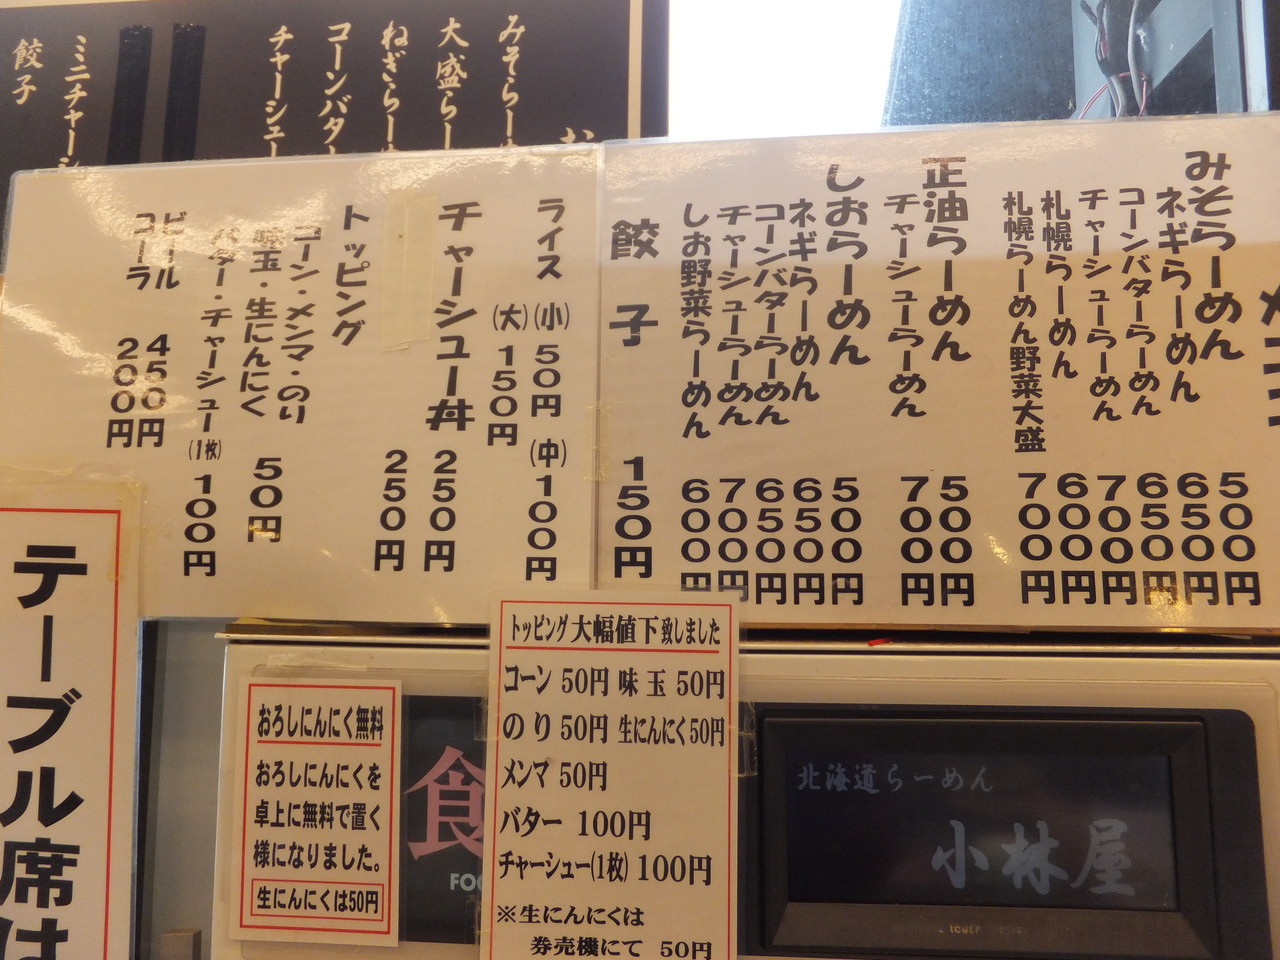 みそらー
大盛らー
ねぎらー
コーンバター
チャーシュー
ミニチャーシ
餃子
みそらーめん 500円
ネギらーめん 650円
コーンバターらーめん 650円
チャーシューらーめん 700円
札幌らーめん 600円
札幌らーめん野菜大盛 700円
正油らーめん 500円
チャーシューらーめん 700円
しおらーめん 500円
ネギらーめん 650円
コーンバターらーめん 650円
チャーシューらーめん 700円
しお野菜らーめん 600円
餃子 150円
ライス (小) 50円 (中) 100円
(大) 150円
チャーシュー丼 250円
250円
トッピング
コーン・メンマ・のり
味玉・生にんにく 50円
バター・チャーシュー(1枚) 100円
ビール 450円
コーラ 200円
テーブル席は
おろしにんにく無料
おろしにんにくを
卓上に無料で置く
様になりました。
生にんにくは50円
食
FOO
トッピング大幅値下致しました
コーン 50円 味玉 50円
のり 50円 生にんにく50円
メンマ 50円
バター 100円
チャーシュー(1枚) 100円
※生にんにくは
券売機にて 50円
北海道らーめん
小林屋